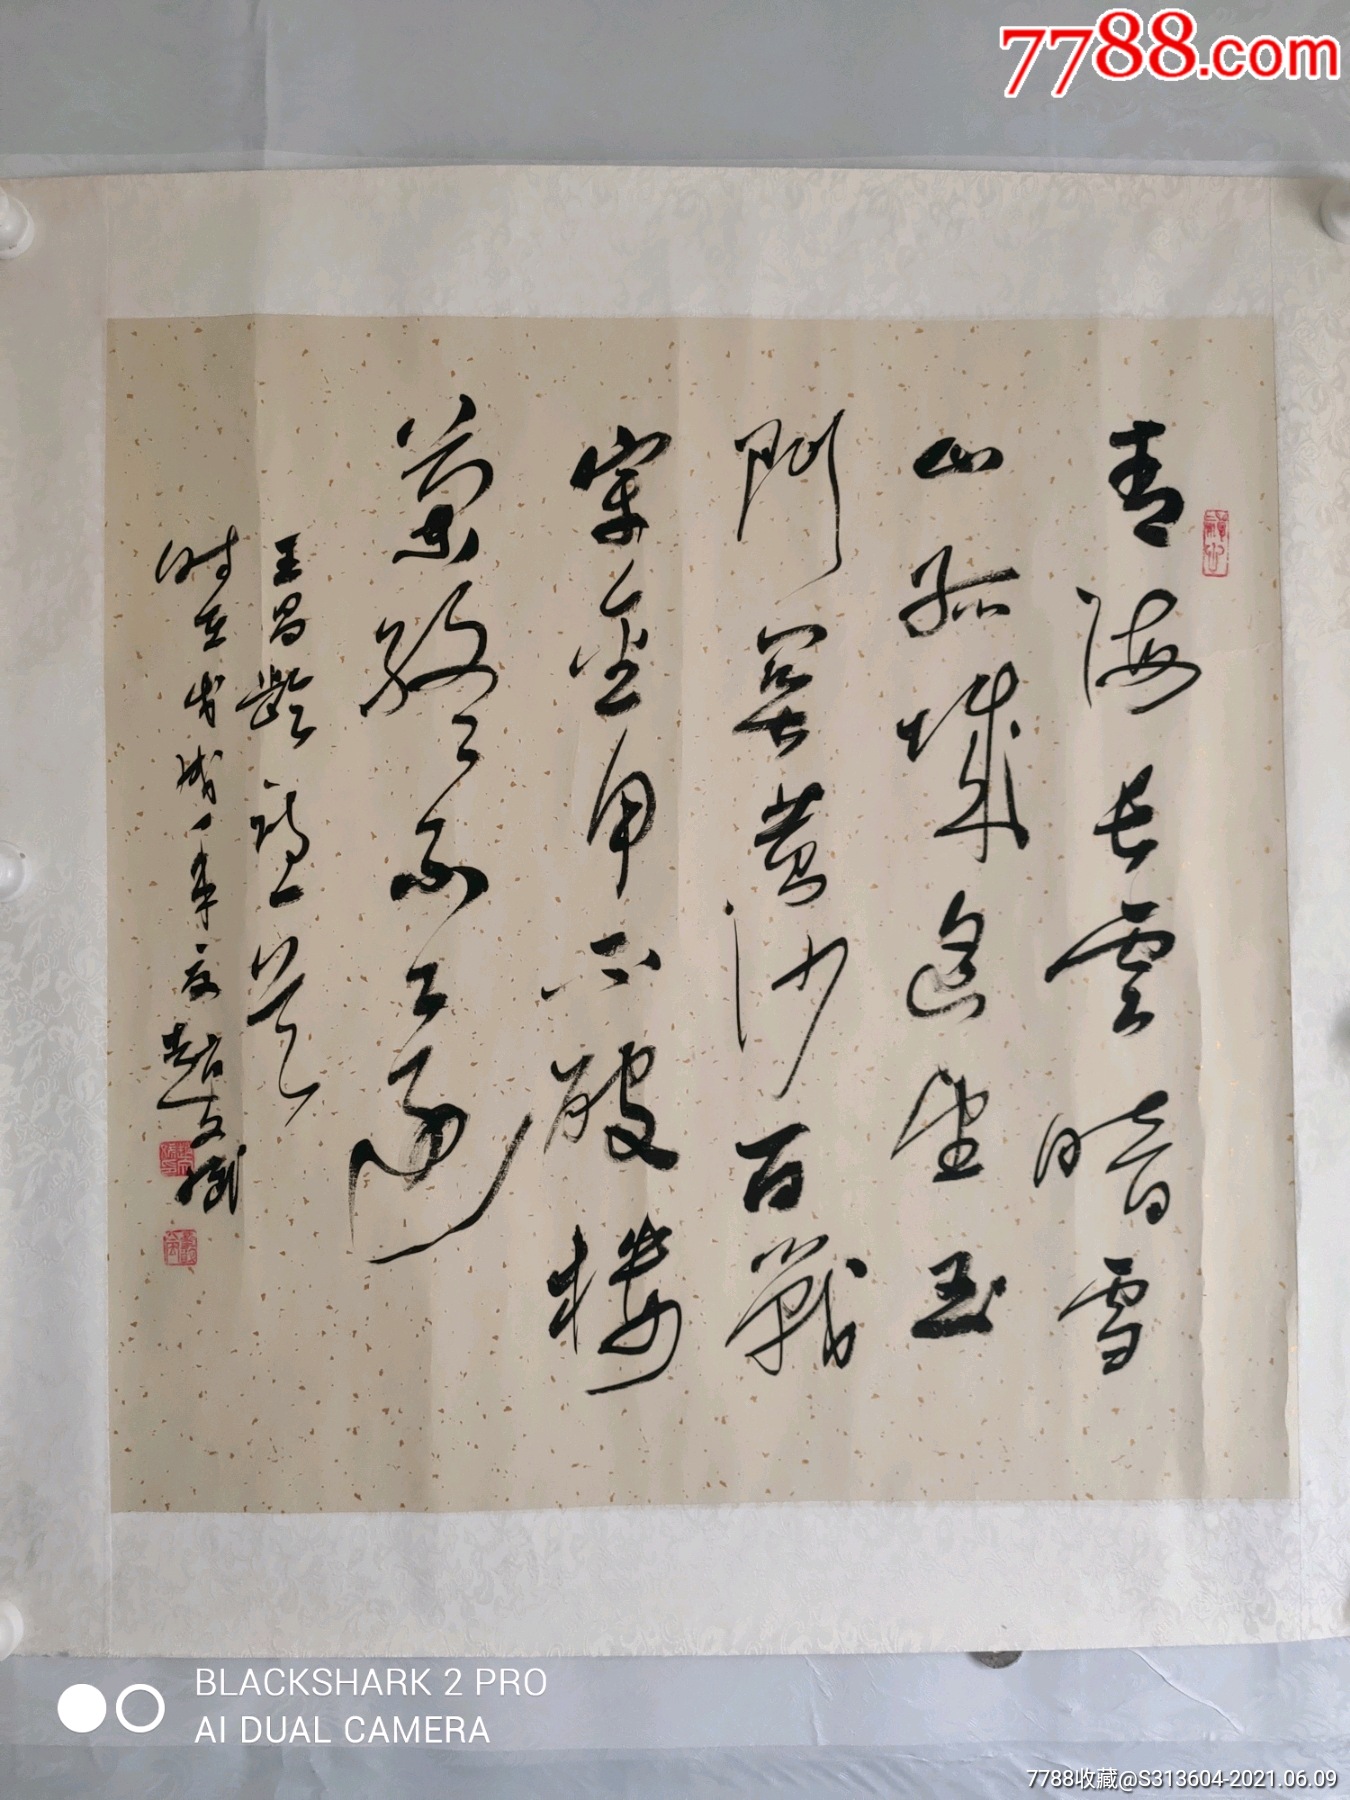 7788.com
青海長雲暗雪
山孤城遥望玉
門關黄沙百戰
穿金甲不破樓
蘭終不還
王昌齡詩一首
时在年夏趙文斌
BLACKSHARK 2 PRO
AI DUAL CAMERA
7788收藏@S313604-2021.06.09